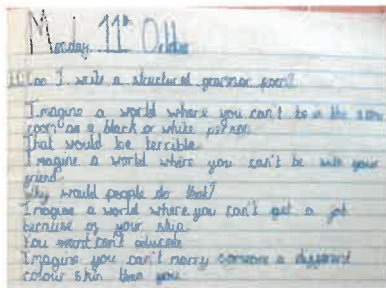 Monday 11th October
Can I write a structured grammar poem?
Imagine a world where you can't be in the same
room as a black or white person.
That would be terrible.
Imagine a world where you can't be with your
friend.
Why would people do that?
Imagine a world where you can't get a job
because of your skin.
You can't educate
Imagine you can't marry someone a different
colour skin than you.